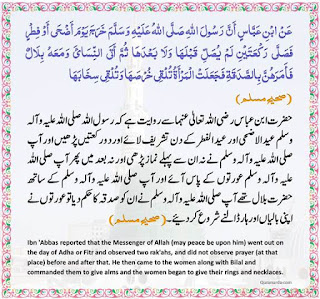 عَنِ ابْنِ عَبَّاسٍ أَنَّ رَسُولَ اللهِ صَلَّى اللهُ عَلَيْهِ وَسَلَّمَ خَرَجَ يَوْمَ أَضْحَى أَوْ فِطْرٍ
فَصَلَّى رَكْعَتَيْنِ لَمْ يُصَلِّ قَبْلَهَا وَلَا بَعْدَهَا ثُمَّ أَتَى النِّسَائَ وَمَعَهُ بِلَالٌ
فَأَمَرَهُنَّ بِالصَّدَقَةِ فَجَعَلَتِ الْمَرْأَةُ تُلْقِي خُرْصَهَا وَتُلْقِي سِخَابَهَا
(صحیح مسلم)
حضرت ابن عباس رضی اللہ تعالیٰ عنہما سے روایت ہے کہ رسول اللہ صلی اللہ علیہ وآلہ
وسلم عیدالاضحیٰ اور عیدالفطر کے دن تشریف لائے اور دو رکعتیں پڑھیں اور آپ
صلی اللہ علیہ وآلہ وسلم نے نہ ان سے پہلے نماز پڑھی اور نہ بعد میں پھر آپ صلی
اللہ علیہ وآلہ وسلم عورتوں کے پاس آئے اور آپ صلی اللہ علیہ وآلہ وسلم کے ساتھ
حضرت بلال تھے آپ صلی اللہ علیہ وآلہ وسلم نے ان کو صدقہ کا حکم دیا تو عورتوں نے
اپنی بالیاں اور ہار ڈالنے شروع کر دیئے۔ (صحیح مسلم)
Ibn 'Abbas reported that the Messenger of Allah (may peace be upon him) went out
on the day of Adha or Fitr and observed two rak'ahs, and did not observe prayer (at that
place) before and after that. He then came to the women along with Bilal and
commanded them to give alms and the women began to give their rings and necklaces.